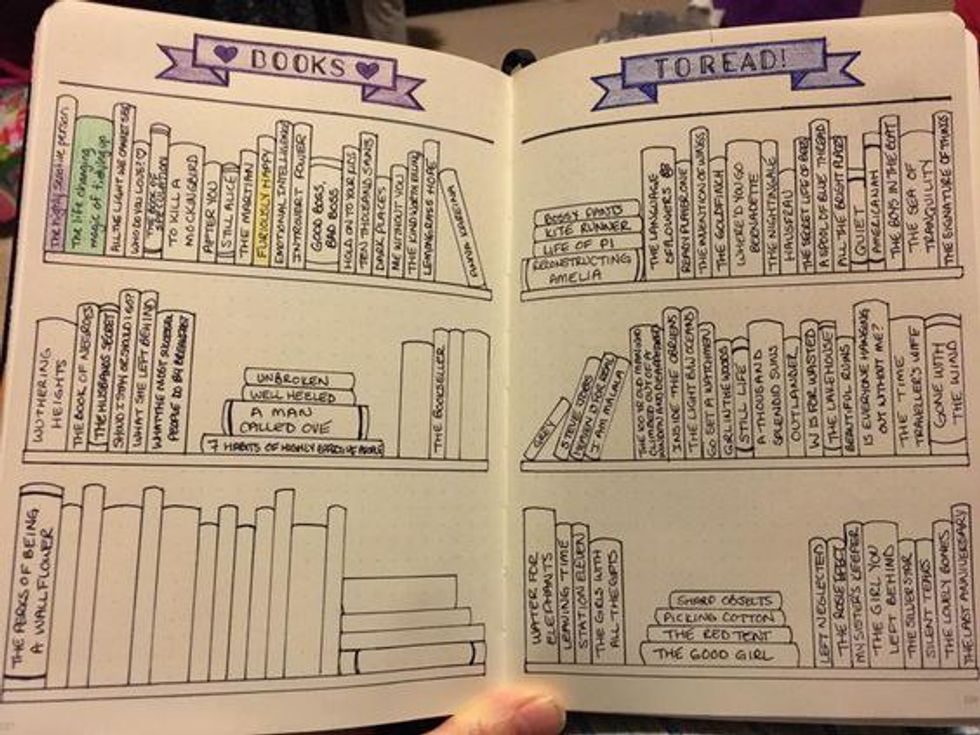 BOOKS
TO READ!
The highly sensitive person
The life changing
magic of tidying up
ALL THE LIGHT WE CANNOT SEE
WHO DO YOU LOVE?
THE BOOK OF
SPECULATION
TO KILL A
MOCKINGBIRD
AFTER YOU
STILL ALICE
THE MARTIAN
FURIOUSLY HAPPY
EMOTIONAL INTELLIGENCE
INTROVERT POWER
GOOD BOSS,
BAD BOSS
HOLD ON TO YOUR KIDS
TEN THOUSAND SAINTS
DARK PLACES
ME WITHOUT YOU
THE KIND WORTH KILLING
LEMONGRASS HOPE
ANNA KARENINA
WUTHERING
HEIGHTS
THE BOOK OF NEGROES
THE HUSBANDS SECRET
SHOULD I STAY OR SHOULD I GO?
WHAT SHE LEFT BEHIND
WHAT THE MOST SUCCESSFUL
PEOPLE DO BY BREAKFAST
UNBROKEN
WELL HEELED
A MAN
CALLED OVE
7 HABITS OF HIGHLY EFFECTIVE PEOPLE
THE BOOKSELLER
THE PERKS OF BEING
A WALLFLOWER
BOSSY PANTS
KITE RUNNER
LIFE OF PI
RECONSTRUCTING
AMELIA
THE LANGUAGE
OF FLOWERS
READY PLAYER ONE
THE INVENTION OF WINGS
THE GOLDFINCH
WHERE'D YOU GO
BERNADETTE
THE NIGHTINGALE
HAUSFRAU
THE SECRET LIFE OF BEES
A SPOOL OF BLUE THREAD
ALL THE BRIGHT PLACES
QUIET
AMERICANAH
THE BOYS IN THE BOAT
THE SEA OF
TRANQUILITY
THE SIGNATURE OF ALL THINGS
GREY
STEVE JOBS
I AM MALALA
THE 100 YR OLD MAN WHO
CLIMBED OUT OF A
WINDOW AND DISAPPEARED
INSIDE THE OBRIENS
THE LIGHT B/W OCEANS
GO SET A WATCHMEN
GIRL IN THE WOODS
STILL LIFE
A THOUSAND
SPLENDID SUNS
OUTLANDER
W IS FOR WASTED
THE LAKE HOUSE
BEAUTIFUL RUINS
IS EVERYONE HANGING
OUT WITHOUT ME?
THE TIME
TRAVELLER'S WIFE
GONE WITH
THE WIND
WATER FOR
ELEPHANTS
LEAVING TIME
STATION ELEVEN
THE GIRLS WITH
ALL THE GIFTS
SHARP OBJECTS
PICKING COTTON
THE RED TENT
THE GOOD GIRL
LEFT NEGLECTED
THE ROSIE EFFECT
MY SISTER'S KEEPER
THE GIRL YOU
LEFT BEHIND
THE SILVER STAR
SILENT TEARS
THE LOVELY BONES
THE LAST ANNIVERSARY